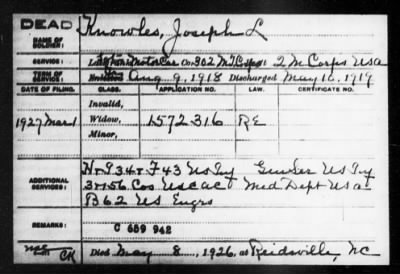 DEAD
Knowles, Joseph L
NAME OF SOLDIER:
SERVICE: Motor Car Co 302 M T C Q M Corps USA
TERM OF SERVICE: Enlisted Aug 9, 1918 Discharged May 16, 1919
DATE OF FILING. CLASS. APPLICATION NO. LAW. CERTIFICATE NO.
Invalid,
1927 Mar 1 Widow, 1572316 RE
Minor,
H + I 34 + F 43 US Inf Gen Ser US Inf
ADDITIONAL SERVICES: 3 + 156 Cos USCAC Med Dept USA
B 362 US Engrs
REMARKS: C 689 942
CK Died May 8, 1926, at Reidsville, NC